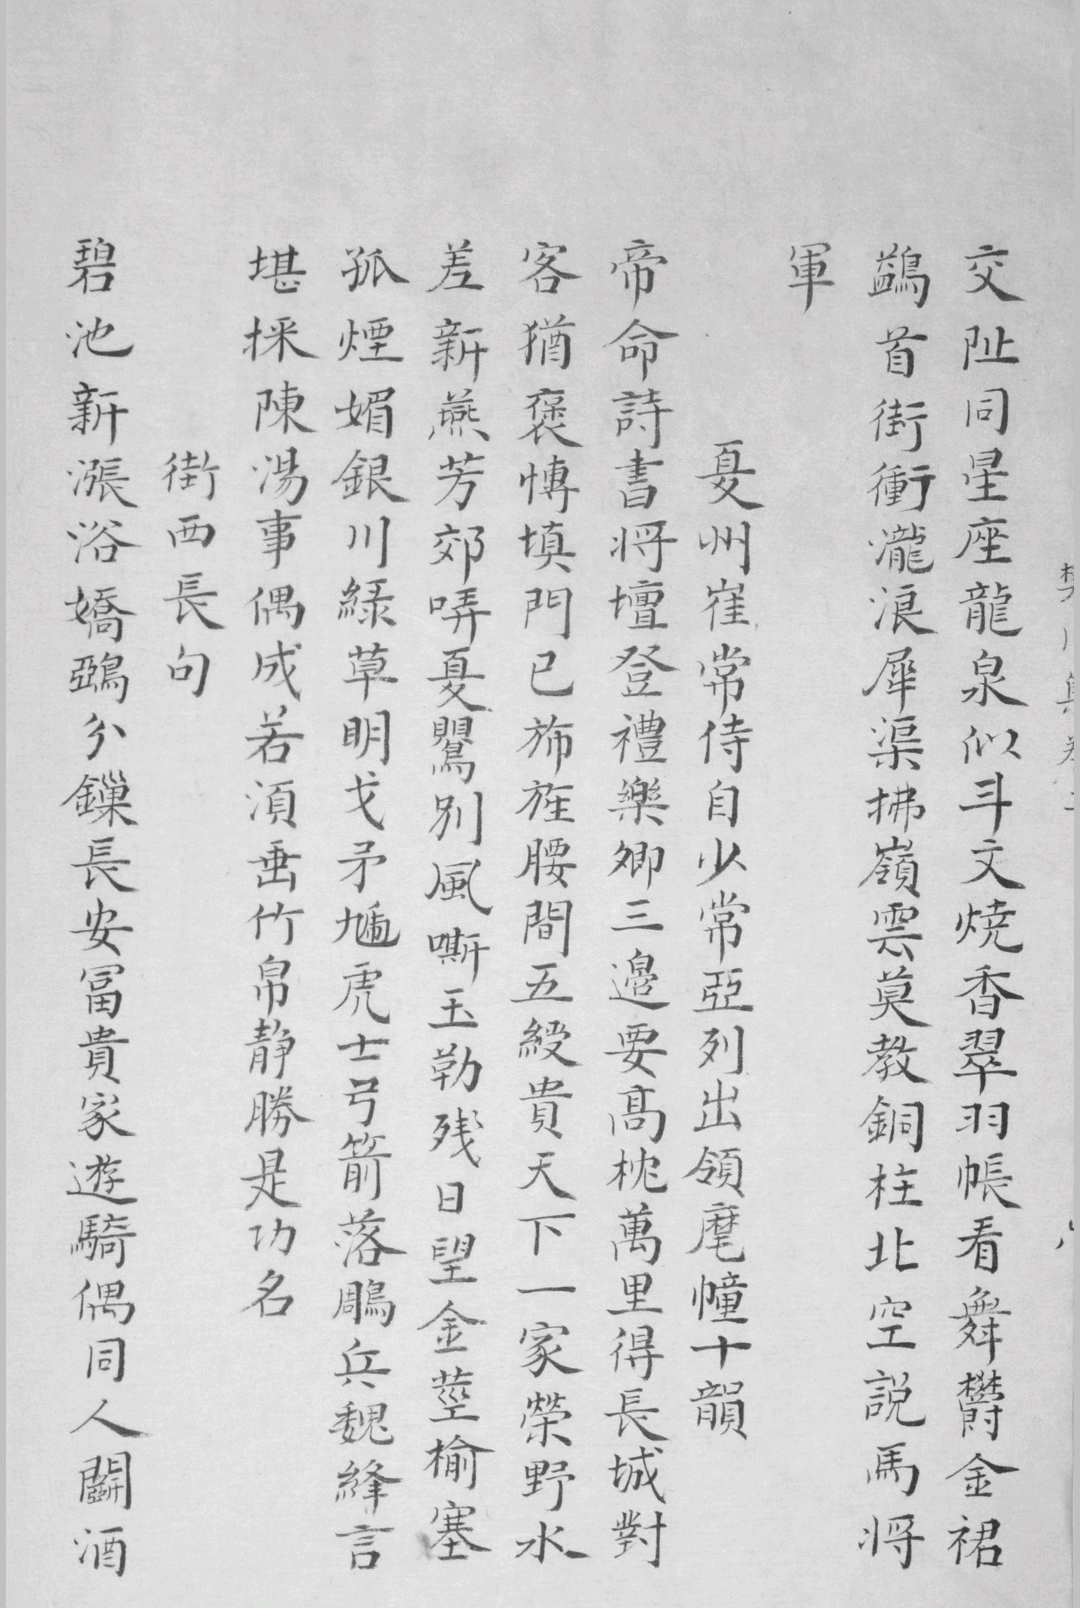 交阯同星座龍泉似斗文燒香翠羽帳看舞鬱金裙
鷁首街衝瀧浪犀渠拂嶺雲莫教銅柱北空説馬將
軍
夏州崔常侍自少常亞列出領麾幢十韻
帝命詩書將壇登禮樂卿三邊要高枕萬里得長城對
客猶褒愽填門已旆旌腰間五綬貴天下一家榮野水
差新燕芳郊哢夏鸎别風嘶玉勒残日望金莖榆塞
孤煙媚銀川綠草明戈矛虓虎士弓箭落鵰兵魏絳言
堪採陳湯事偶成若湏垂竹帛静勝是功名
街西長句
碧池新漲浴嬌鵶分鏁長安冨貴家遊騎偶同人鬭酒